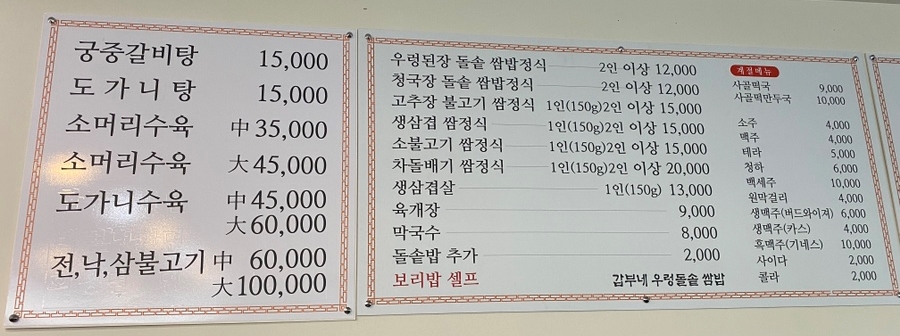 궁중갈비탕 15,000
도가니탕 15,000
소머리수육 中 35,000
소머리수육 大 45,000
도가니수육 中 45,000
大 60,000
전,낙,삼불고기 中 60,000
大 100,000
우렁된장 돌솥 쌈밥정식 2인 이상 12,000
청국장 돌솥 쌈밥정식 2인 이상 12,000
고추장 불고기 쌈정식 1인(150g)2인 이상 15,000
생삼겹 쌈정식 1인(150g)2인 이상 15,000
소불고기 쌈정식 1인(150g)2인 이상 15,000
차돌배기 쌈정식 1인(150g)2인 이상 20,000
생삼겹살 1인(150g) 13,000
육개장 9,000
막국수 8,000
돌솥밥 추가 2,000
보리밥 셀프 갑부네 우렁돌솥 쌈밥
계절메뉴
사골떡국 9,000
사골떡만두국 10,000
소주 4,000
맥주 4,000
테라 5,000
청하 6,000
백세주 10,000
원막걸리 4,000
생맥주(버드와이져) 6,000
생맥주(카스) 4,000
흑맥주(기네스) 10,000
사이다 2,000
콜라 2,000